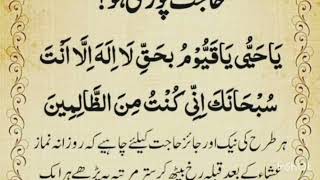 حاجت پوری ہو!
یَا حَیُّ یَا قَیُّوْمُ بِحَقِّ لَا اِلٰهَ اِلَّا اَنْتَ
سُبْحَانَكَ اِنِّی كُنْتُ مِنَ الظَّالِمِینَ
ہر طرح کی نیک اور جائز حاجت کیلئے چاہیے کہ روزانہ نماز
عشاء کے بعد قبلہ رخ بیٹھ کر ستر مرتبہ پڑھے ہر ایک